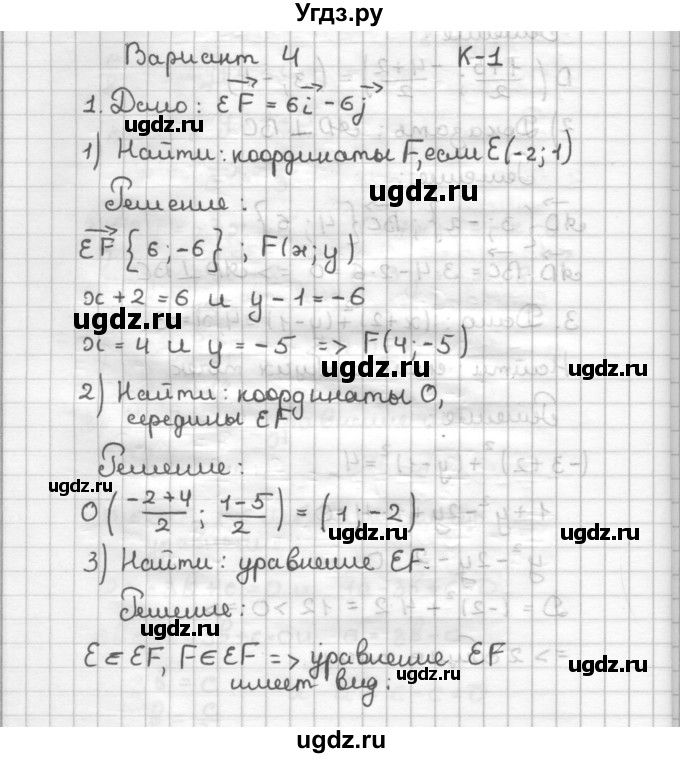 Угдз.ру
Вариант 4 К-1
1. Дано: EF = 6i - 6j
1) Найти: координаты F, если E(-2; 1)
Решение:
EF {6; -6}; F(x; y)
x + 2 = 6 и y - 1 = -6
x = 4 и y = -5 => F(4; -5)
2) Найти: координаты O,
середины EF
Решение:
O((-2+4)/2; (1-5)/2) = (1; -2)
3) Найти: уравнение EF.
Решение:
E ∈ EF, F ∈ EF => уравнение EF
имеет вид:
ugdz.ru
ugdz.ru
ugdz.ru
ugdz.ru
ugdz.ru
ugdz.ru
ugdz.ru
ugdz.ru
ugdz.ru
ugdz.ru
ugdz.ru
ugdz.ru
ugdz.ru